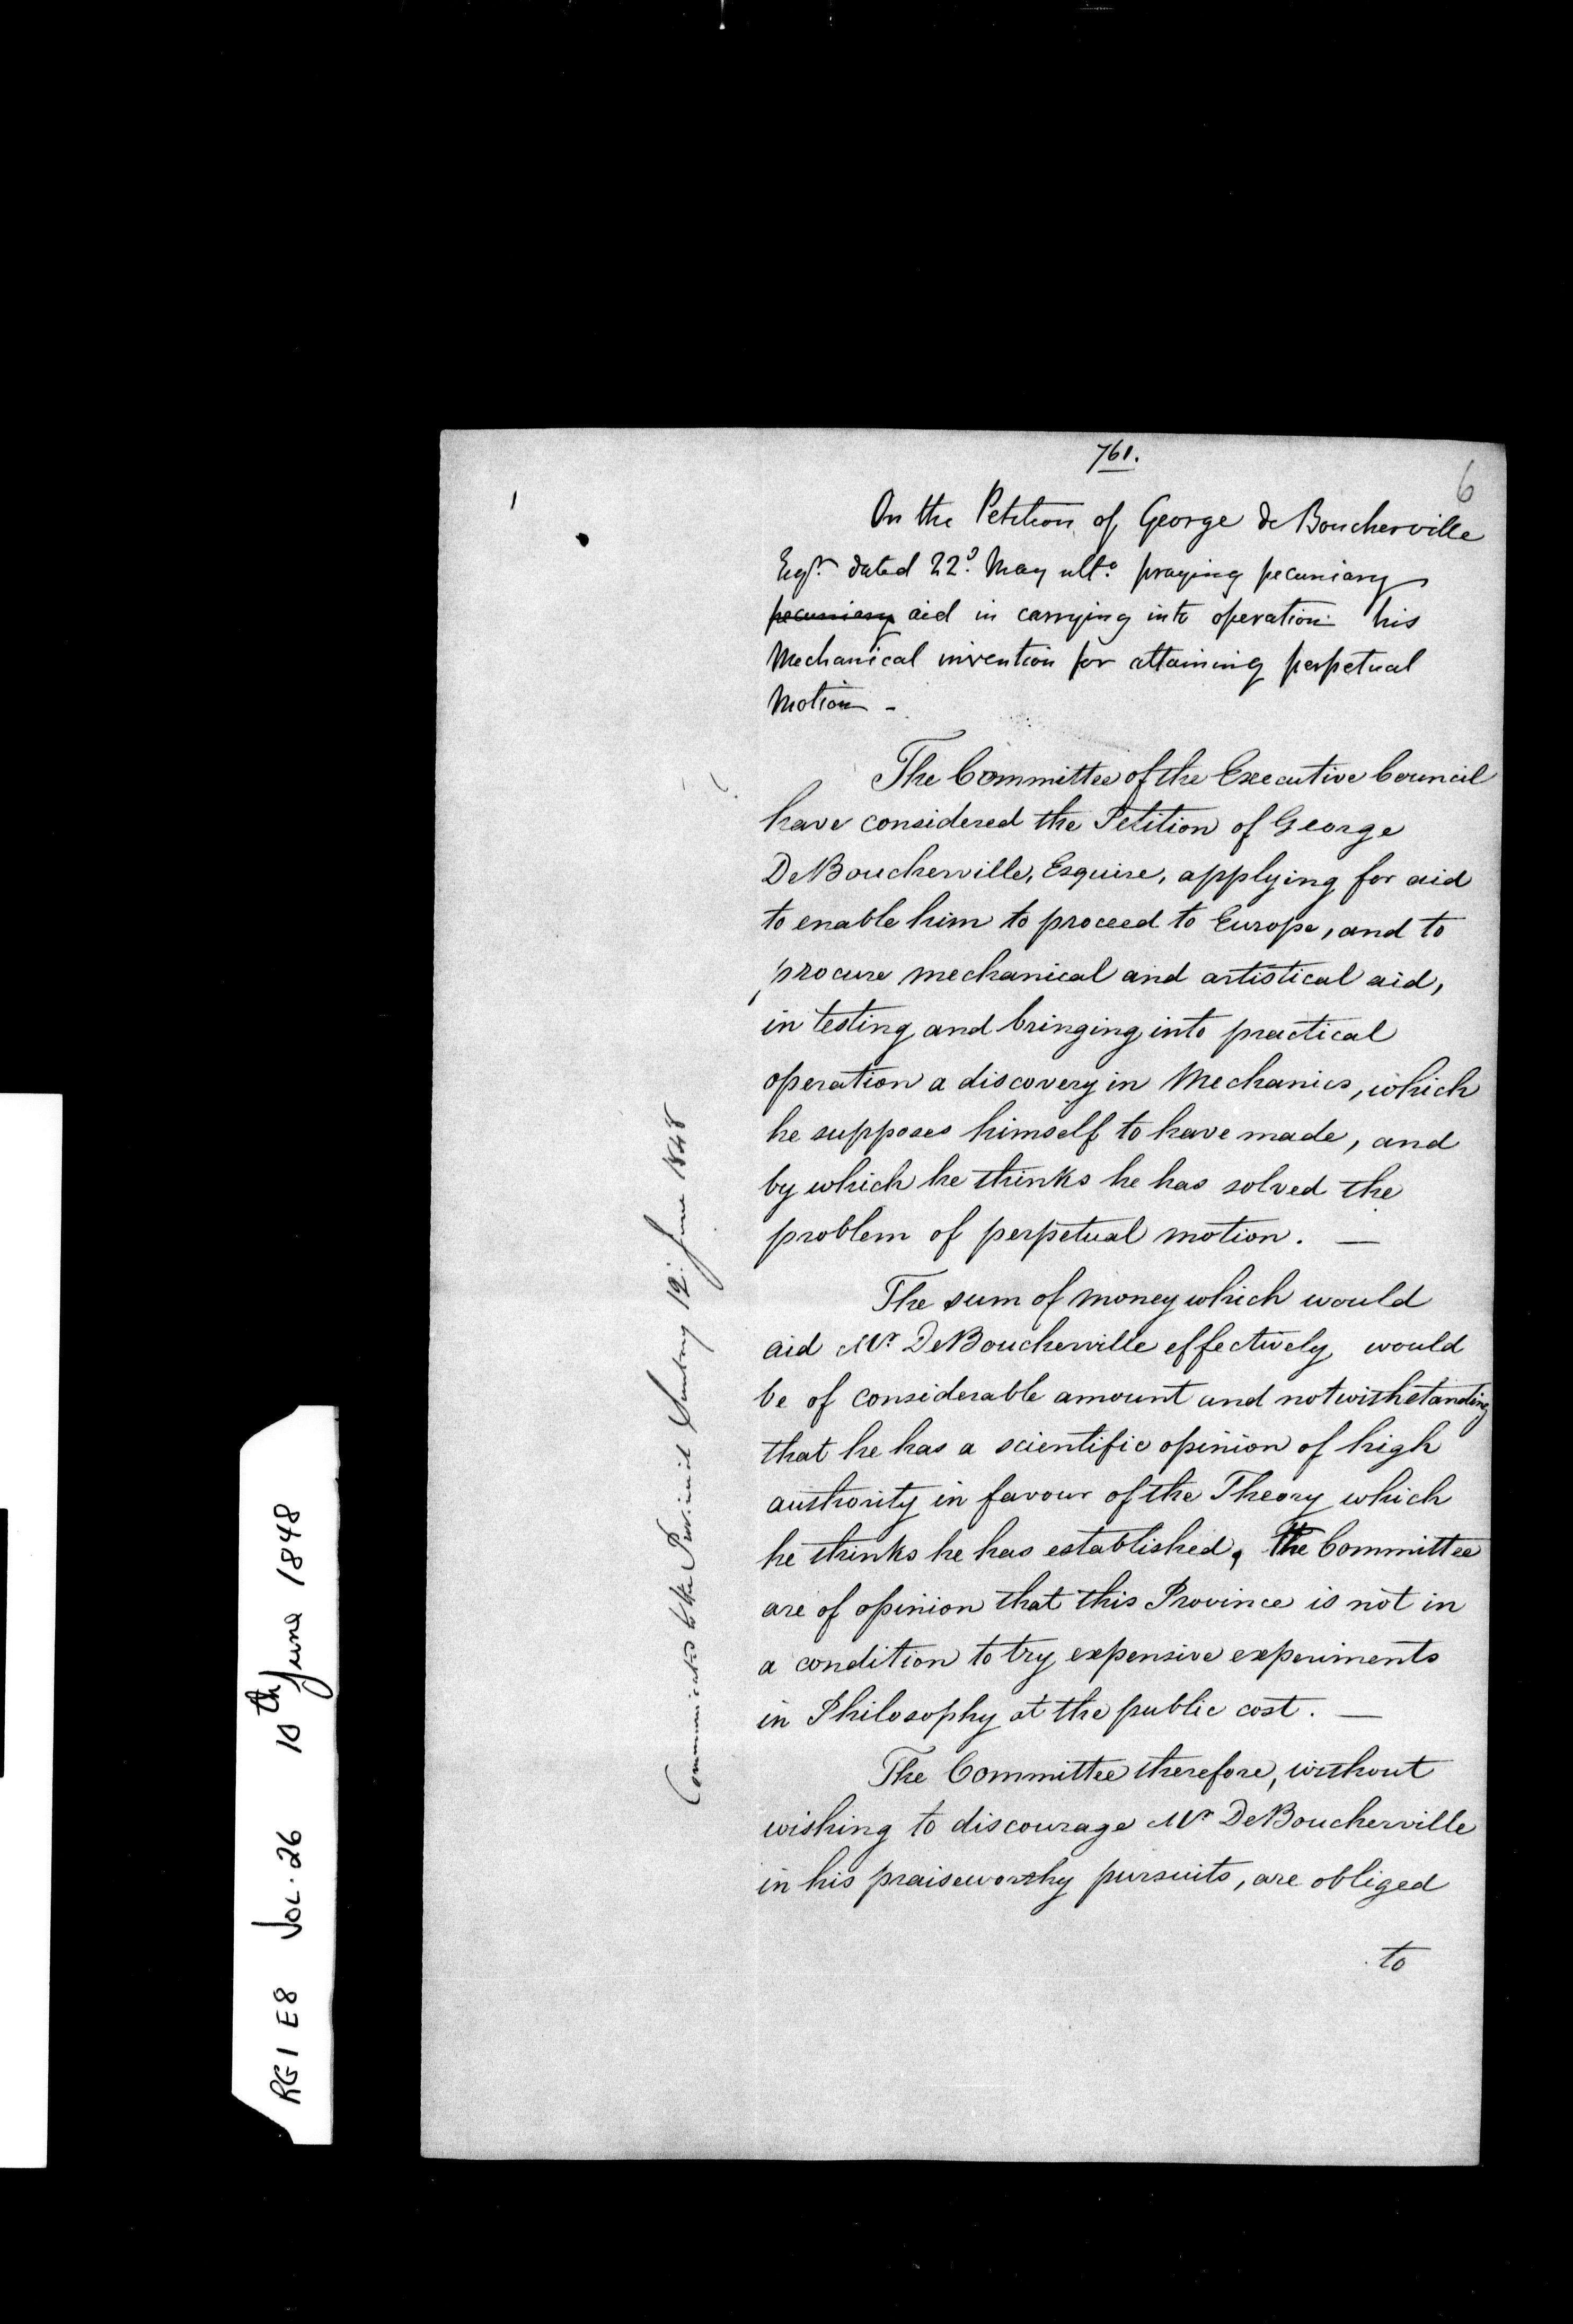 761.
6
1
On the Petition of George de Boucherville
Esqr. dated 22d. May ulto. praying pecuniary
pecuniary aid in carrying into operation his
Mechanical invention for attaining perpetual
Motion -
The Committee of the Executive Council
have considered the Petition of George
DeBoucherville, Esquire, applying for aid
to enable him to proceed to Europe, and to
procure mechanical and artistical aid,
in testing and bringing into practical
operation a discovery in Mechanics, which
he supposes himself to have made, and
by which he thinks he has solved the
problem of perpetual motion. —
The sum of money which would
aid Mr. DeBoucherville effectively would
be of considerable amount and notwithstanding
that he has a scientific opinion of high
authority in favour of the Theory which
he thinks he has established, the Committee
are of opinion that this Province is not in
a condition to try expensive experiments
in Philosophy at the public cost. —
The Committee therefore, without
wishing to discourage Mr DeBoucherville
in his praiseworthy pursuits, are obliged
to
Communicated to the Provincial Secretary 12. June 1848
RG1 E8 VOL. 26 10th June 1848